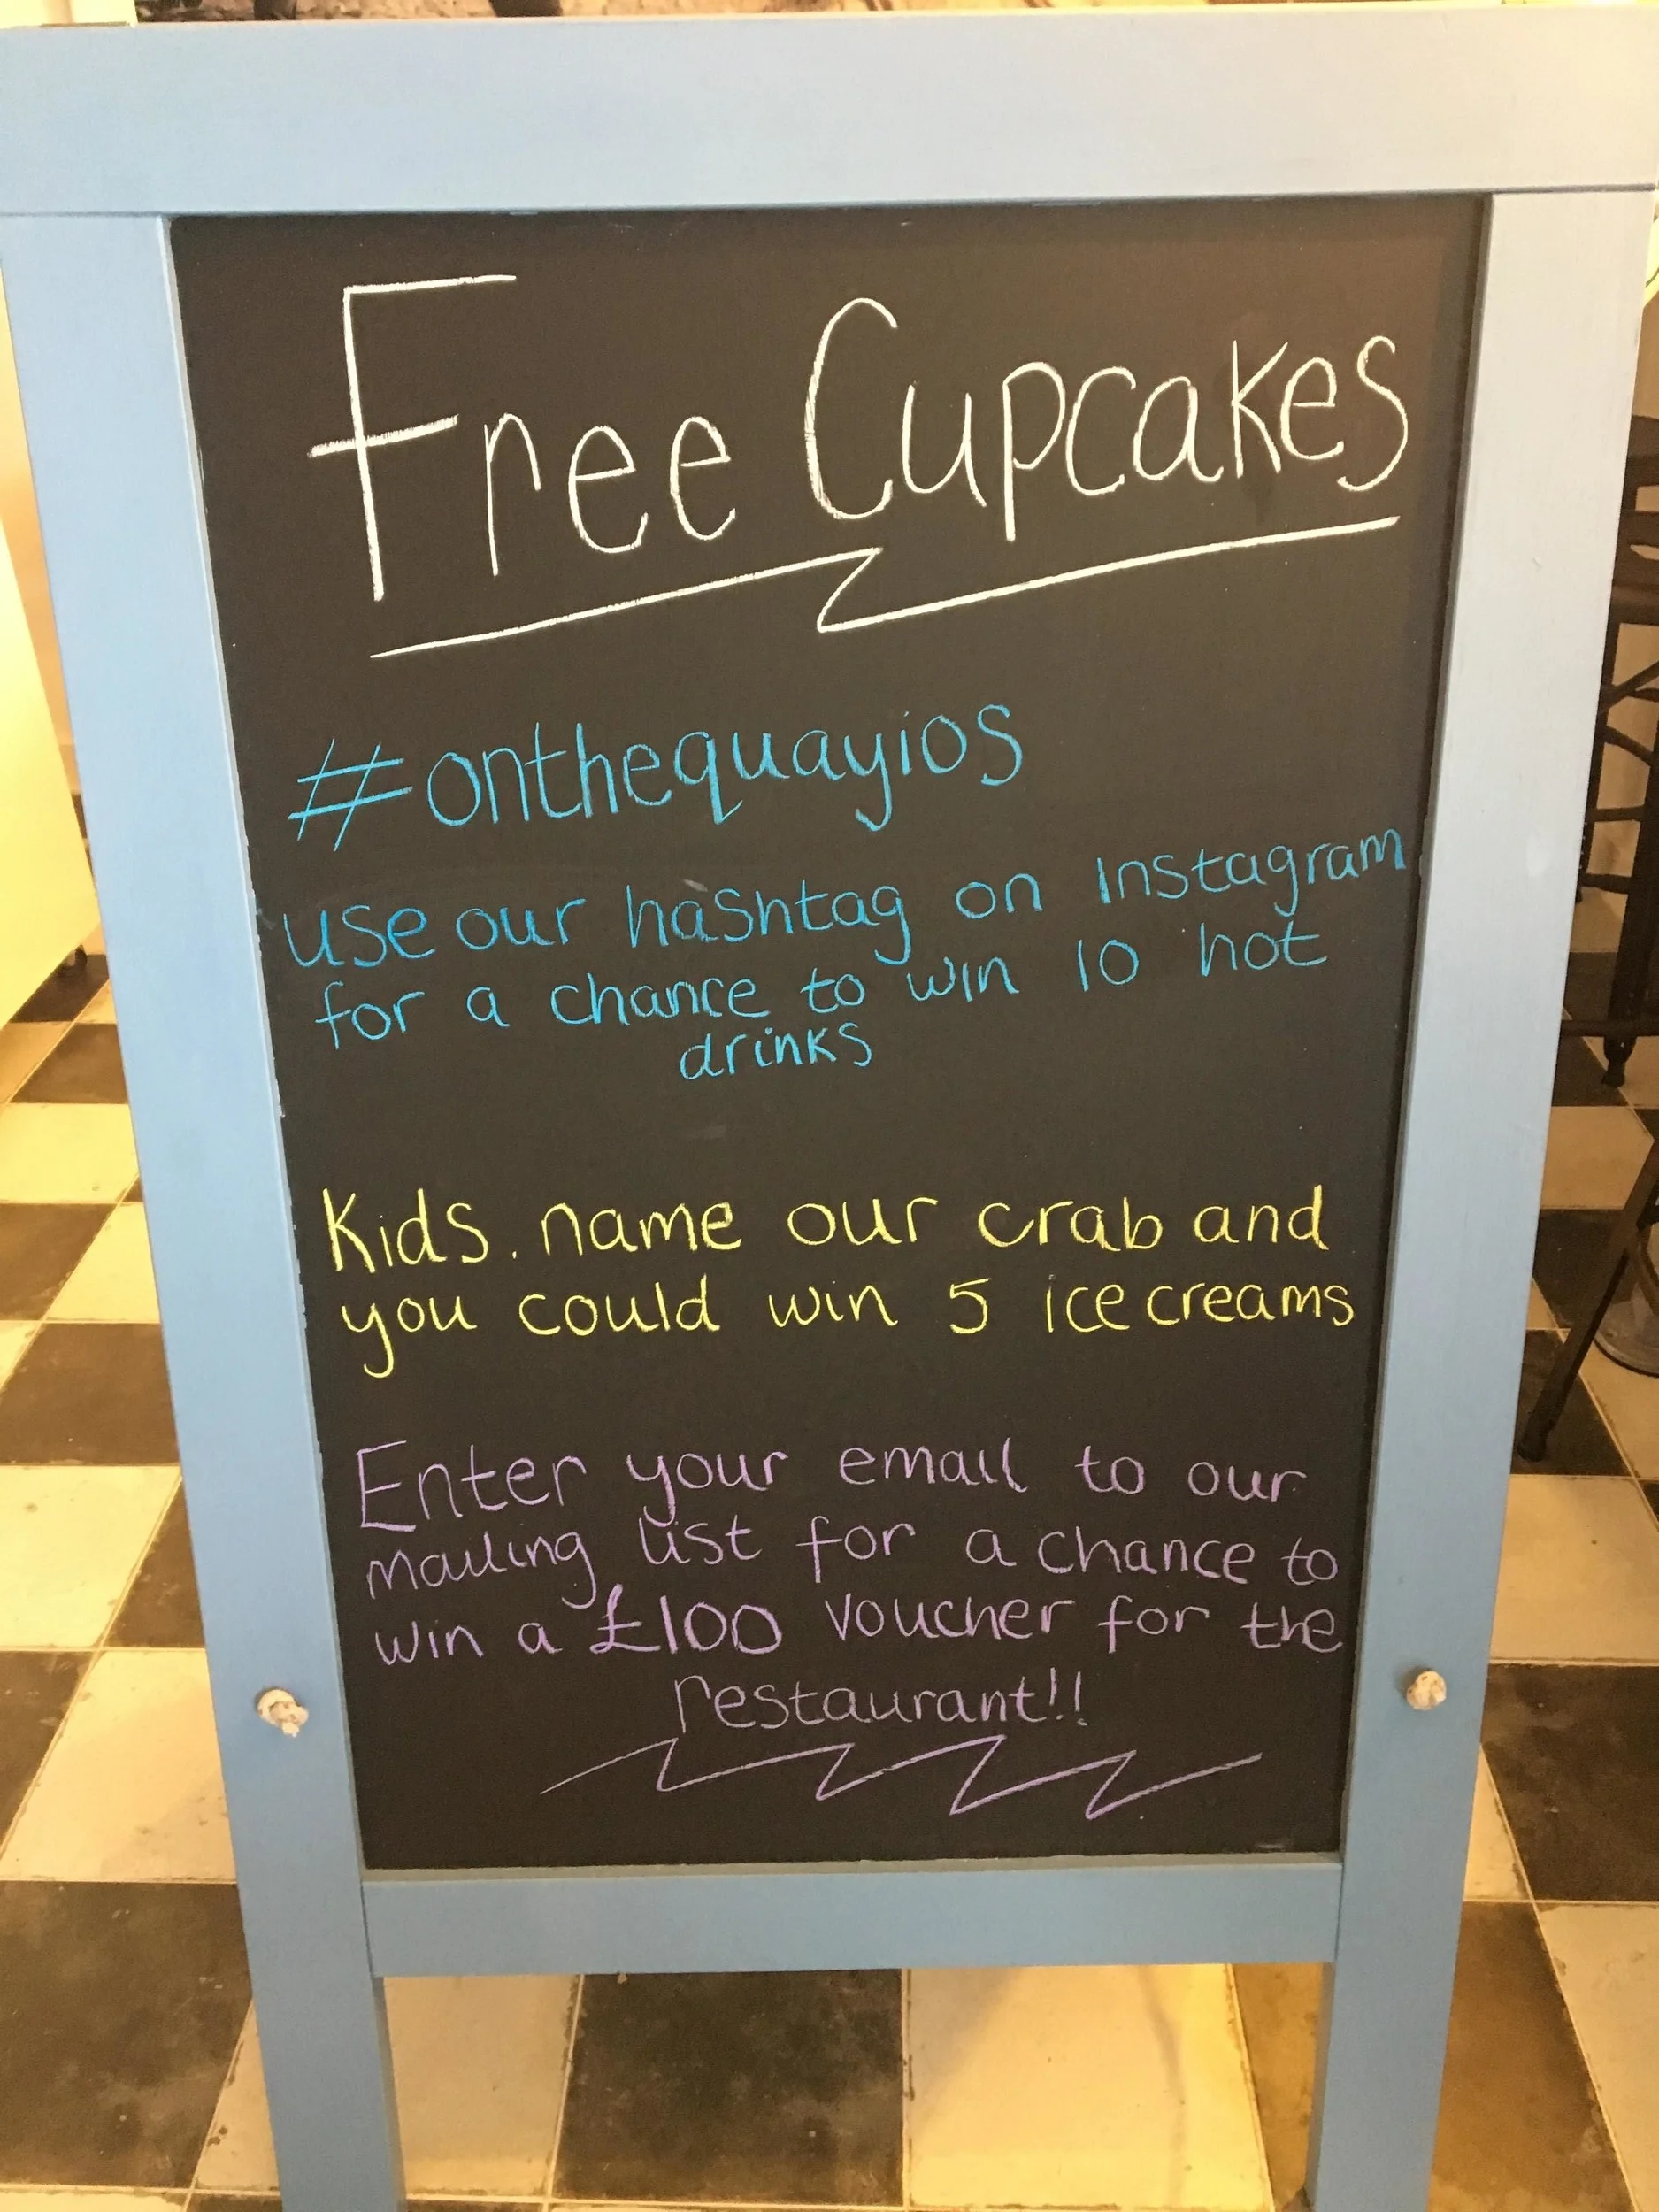 Free Cupcakes
#onthequayios
use our hashtag on Instagram
for a chance to win 10 hot
drinks
Kids. name our crab and
you could win 5 ice creams
Enter your email to our
mailing list for a chance to
win a £100 voucher for the
restaurant!!